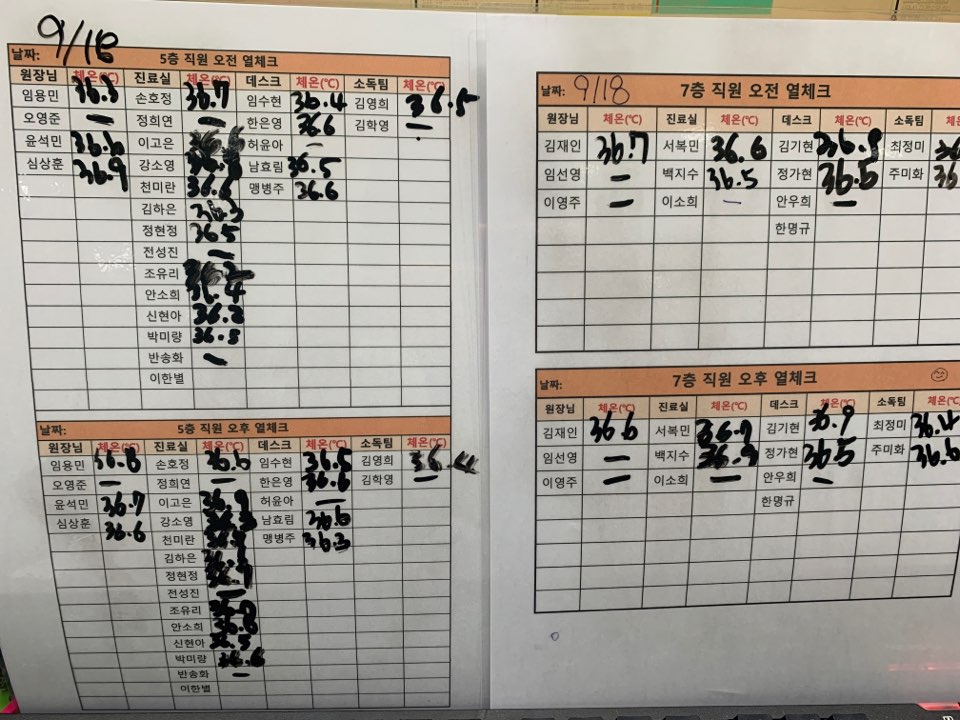 9/18
날짜: 5층 직원 오전 열체크
원장님 체온(℃) 진료실 체온(℃) 데스크 체온(℃) 소독팀 체온(℃)
임용민 36.3 손호정 36.7 임수현 36.4 김영희 36.5
오영준 — 정희연 — 한은영 36.6 김학영 —
윤석민 36.6 이고은 허윤아 —
심상훈 36.9 강소영 남효림 36.5
천미란 36.6 맹병주 36.6
김하은 36.3
정현정 36.5
전성진 —
조유리
안소희 36.4
신현아 36.2
박미량 36.8
반송화 —
이한별
날짜: 5층 직원 오후 열체크
원장님 체온(℃) 진료실 체온(℃) 데스크 체온(℃) 소독팀 체온(℃)
임용민 36.8 손호정 36.6 임수현 36.5 김영희 36.4
오영준 — 정희연 — 한은영 36.6 김학영 —
윤석민 36.7 이고은 36.9 허윤아 —
심상훈 36.6 강소영 남효림 36.6
천미란 맹병주 36.3
김하은
정현정 36.7
전성진 —
조유리
안소희 36.8
신현아 36.5
박미량 36.6
반송화 —
이한별
날짜: 9/18 7층 직원 오전 열체크
원장님 체온(℃) 진료실 체온(℃) 데스크 체온(℃) 소독팀
김재인 36.7 서복민 36.6 김기현 36.8 최정미 36
임선영 — 백지수 36.5 정가현 36.6 주미화 36
이영주 — 이소희 — 안우희 —
한명규
날짜: 7층 직원 오후 열체크
원장님 체온(℃) 진료실 체온(℃) 데스크 체온(℃) 소독팀 체온(℃)
김재인 36.6 서복민 36.7 김기현 36.9 최정미 36.4
임선영 — 백지수 정가현 36.5 주미화 36.6
이영주 — 이소희 — 안우희 —
한명규